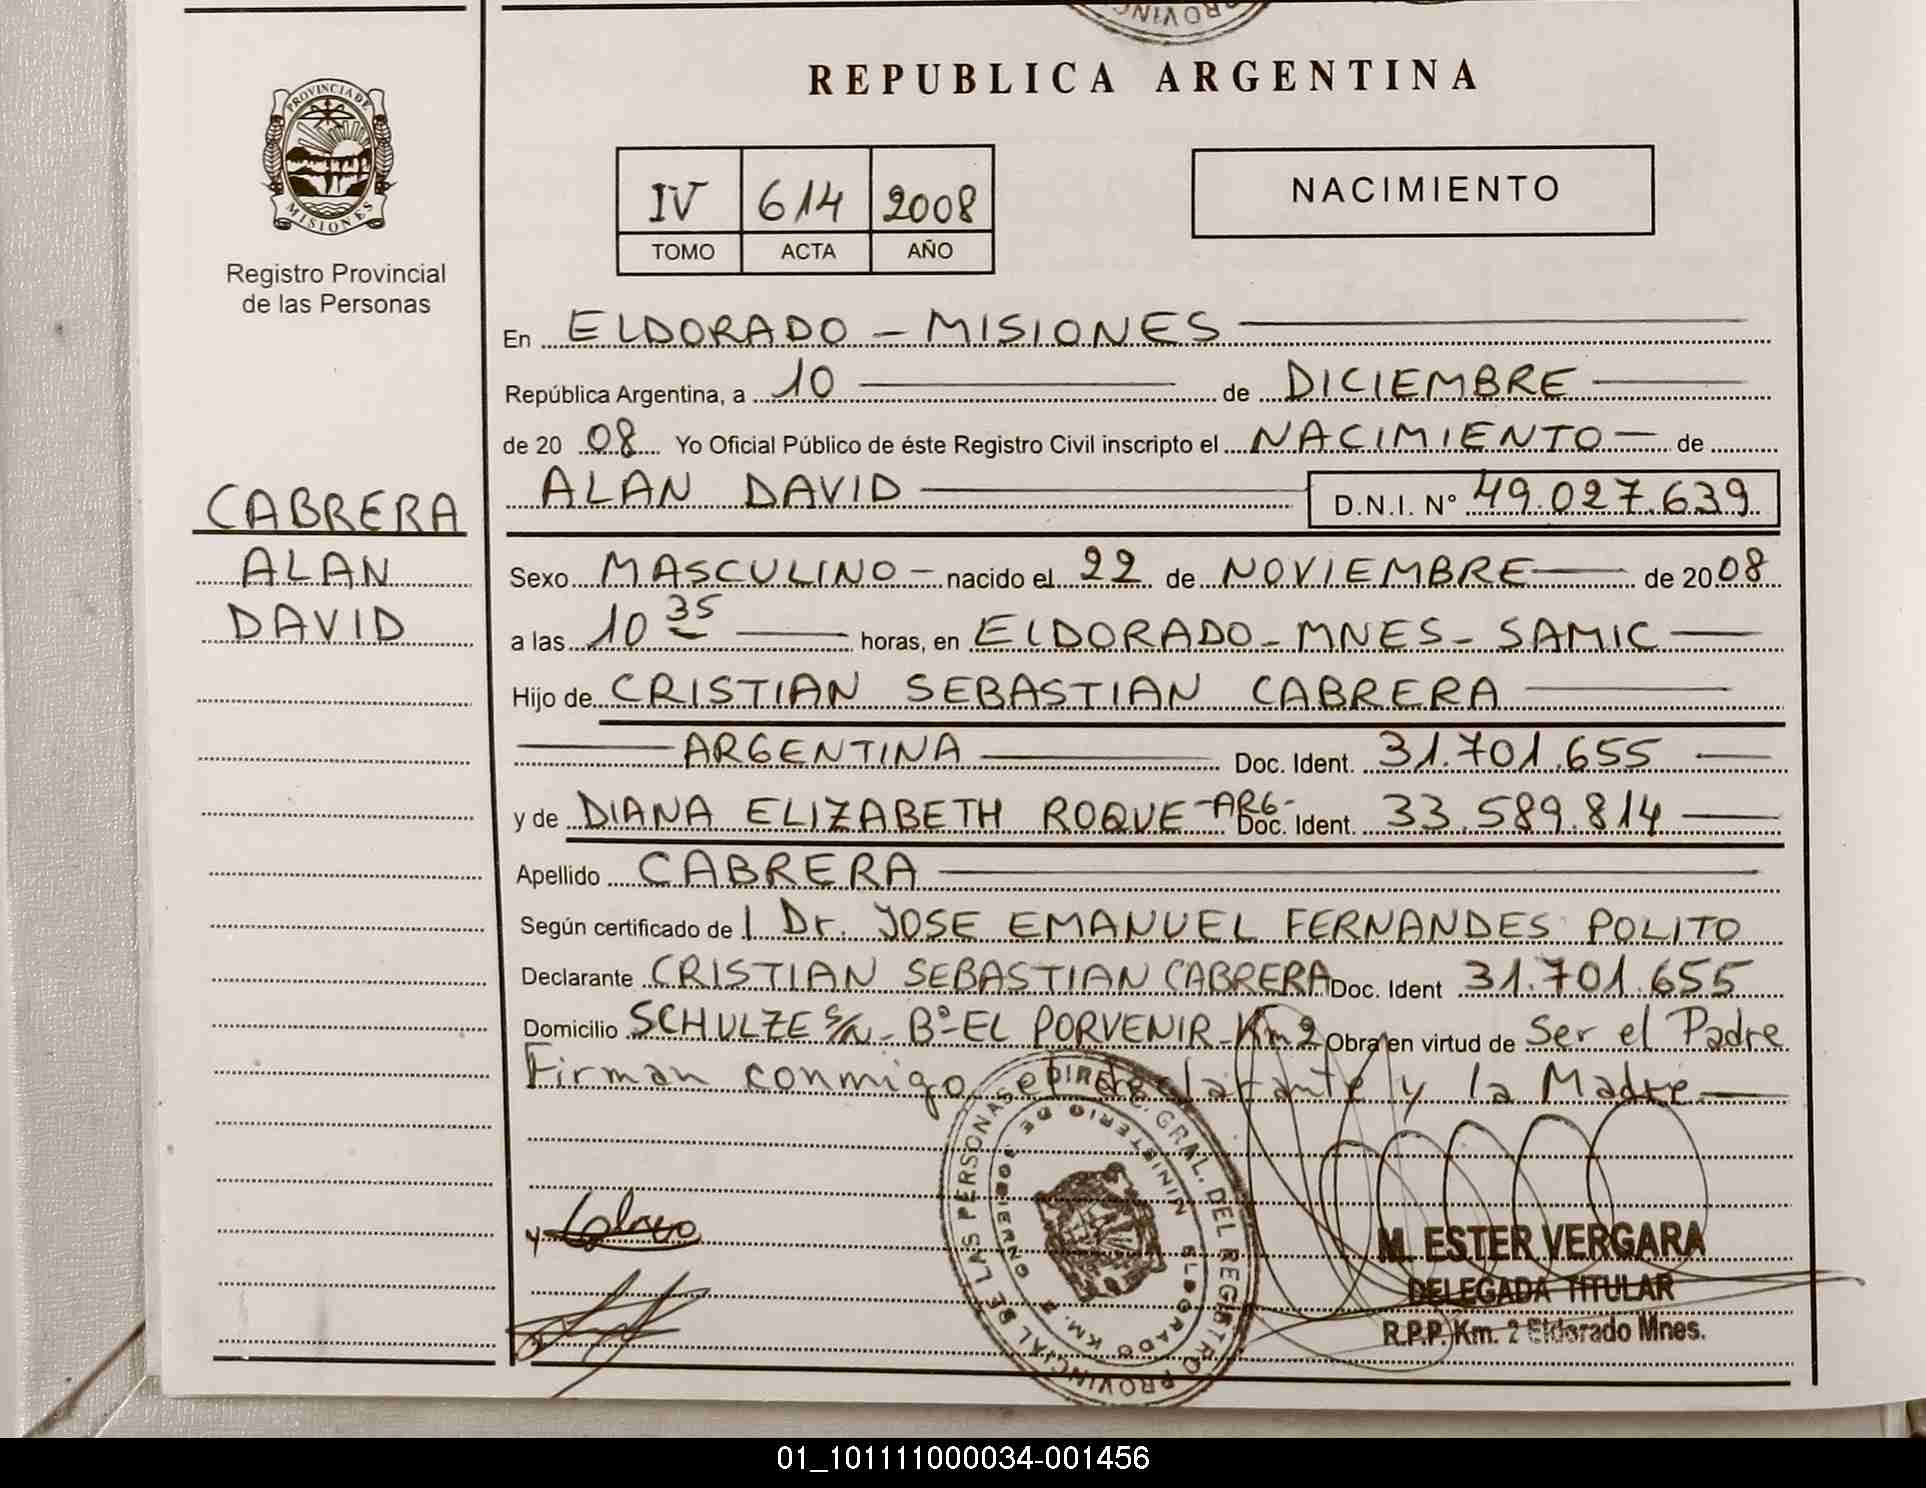 PROVINCIA DE
MISIONES
Registro Provincial
de las Personas
CABRERA
ALAN
DAVID
REPUBLICA ARGENTINA
IV 614 2008
TOMO ACTA AÑO
NACIMIENTO
En ELDORADO - MISIONES
República Argentina, a 10 de DICIEMBRE
de 20 08 Yo Oficial Público de éste Registro Civil inscripto el NACIMIENTO - de
ALAN DAVID D.N.I. N° 49.027.639
Sexo MASCULINO - nacido el 22 de NOVIEMBRE de 20 08
a las 10 35 horas, en ELDORADO - MNES - SAMIC
Hijo de CRISTIAN SEBASTIAN CABRERA
ARGENTINA Doc. Ident. 31.701.655
y de DIANA ELIZABETH ROQUE -ARG- Doc. Ident. 33.589.814
Apellido CABRERA
Según certificado de l Dr. JOSE EMANUEL FERNANDES POLITO
Declarante CRISTIAN SEBASTIAN CABRERA Doc. Ident 31.701.655
Domicilio SCHULZE S/N - B° EL PORVENIR - Km 2 Obra en virtud de Ser el Padre
Firman conmigo el declarante y la Madre
DIREC. GRAL. DEL REGISTRO PROVINCIAL DE LAS PERSONAS
MINISTERIO DE GOBIERNO
ELDORADO KM. 2
M. ESTER VERGARA
DELEGADA TITULAR
R.P.P. Km. 2 Eldorado Mnes.
01_101111000034-001456